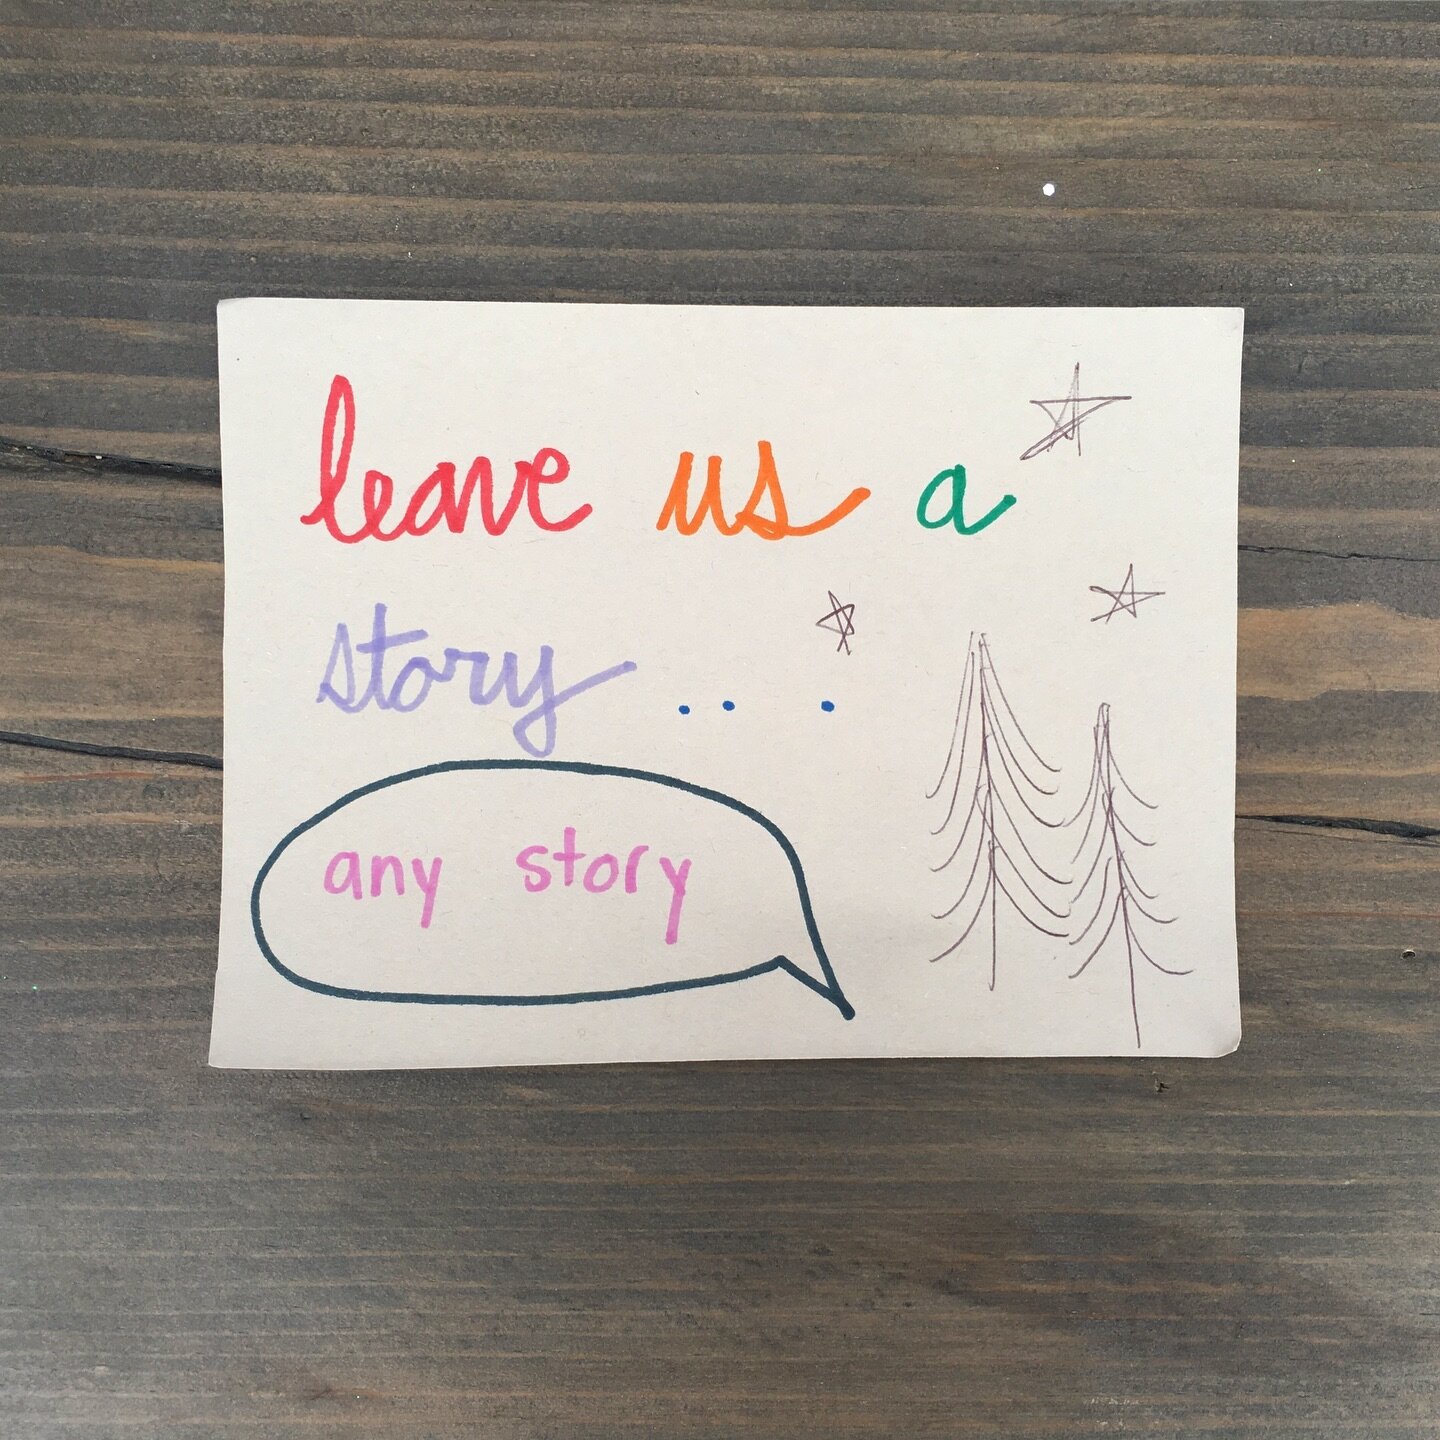 leave us a
story . . .
any story